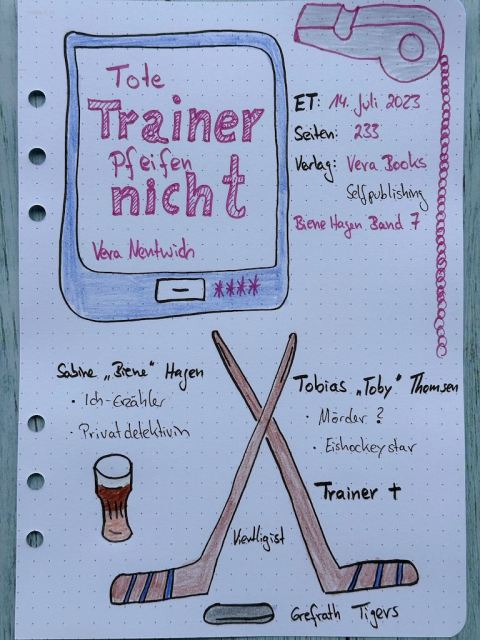 Tote
Trainer
Pfeifen
nicht
Vera Nentwich
****
ET: 14. Juli 2023
Seiten: 233
Verlag: Vera Books
Selfpublishing
Biene Hagen Band 7
Sabine „Biene“ Hagen
• Ich-Erzähler
• Privatdetektivin
Tobias „Toby“ Thomsen
• Mörder ?
• Eishockeystar
Trainer †
Viertligist
Grefrath Tigers